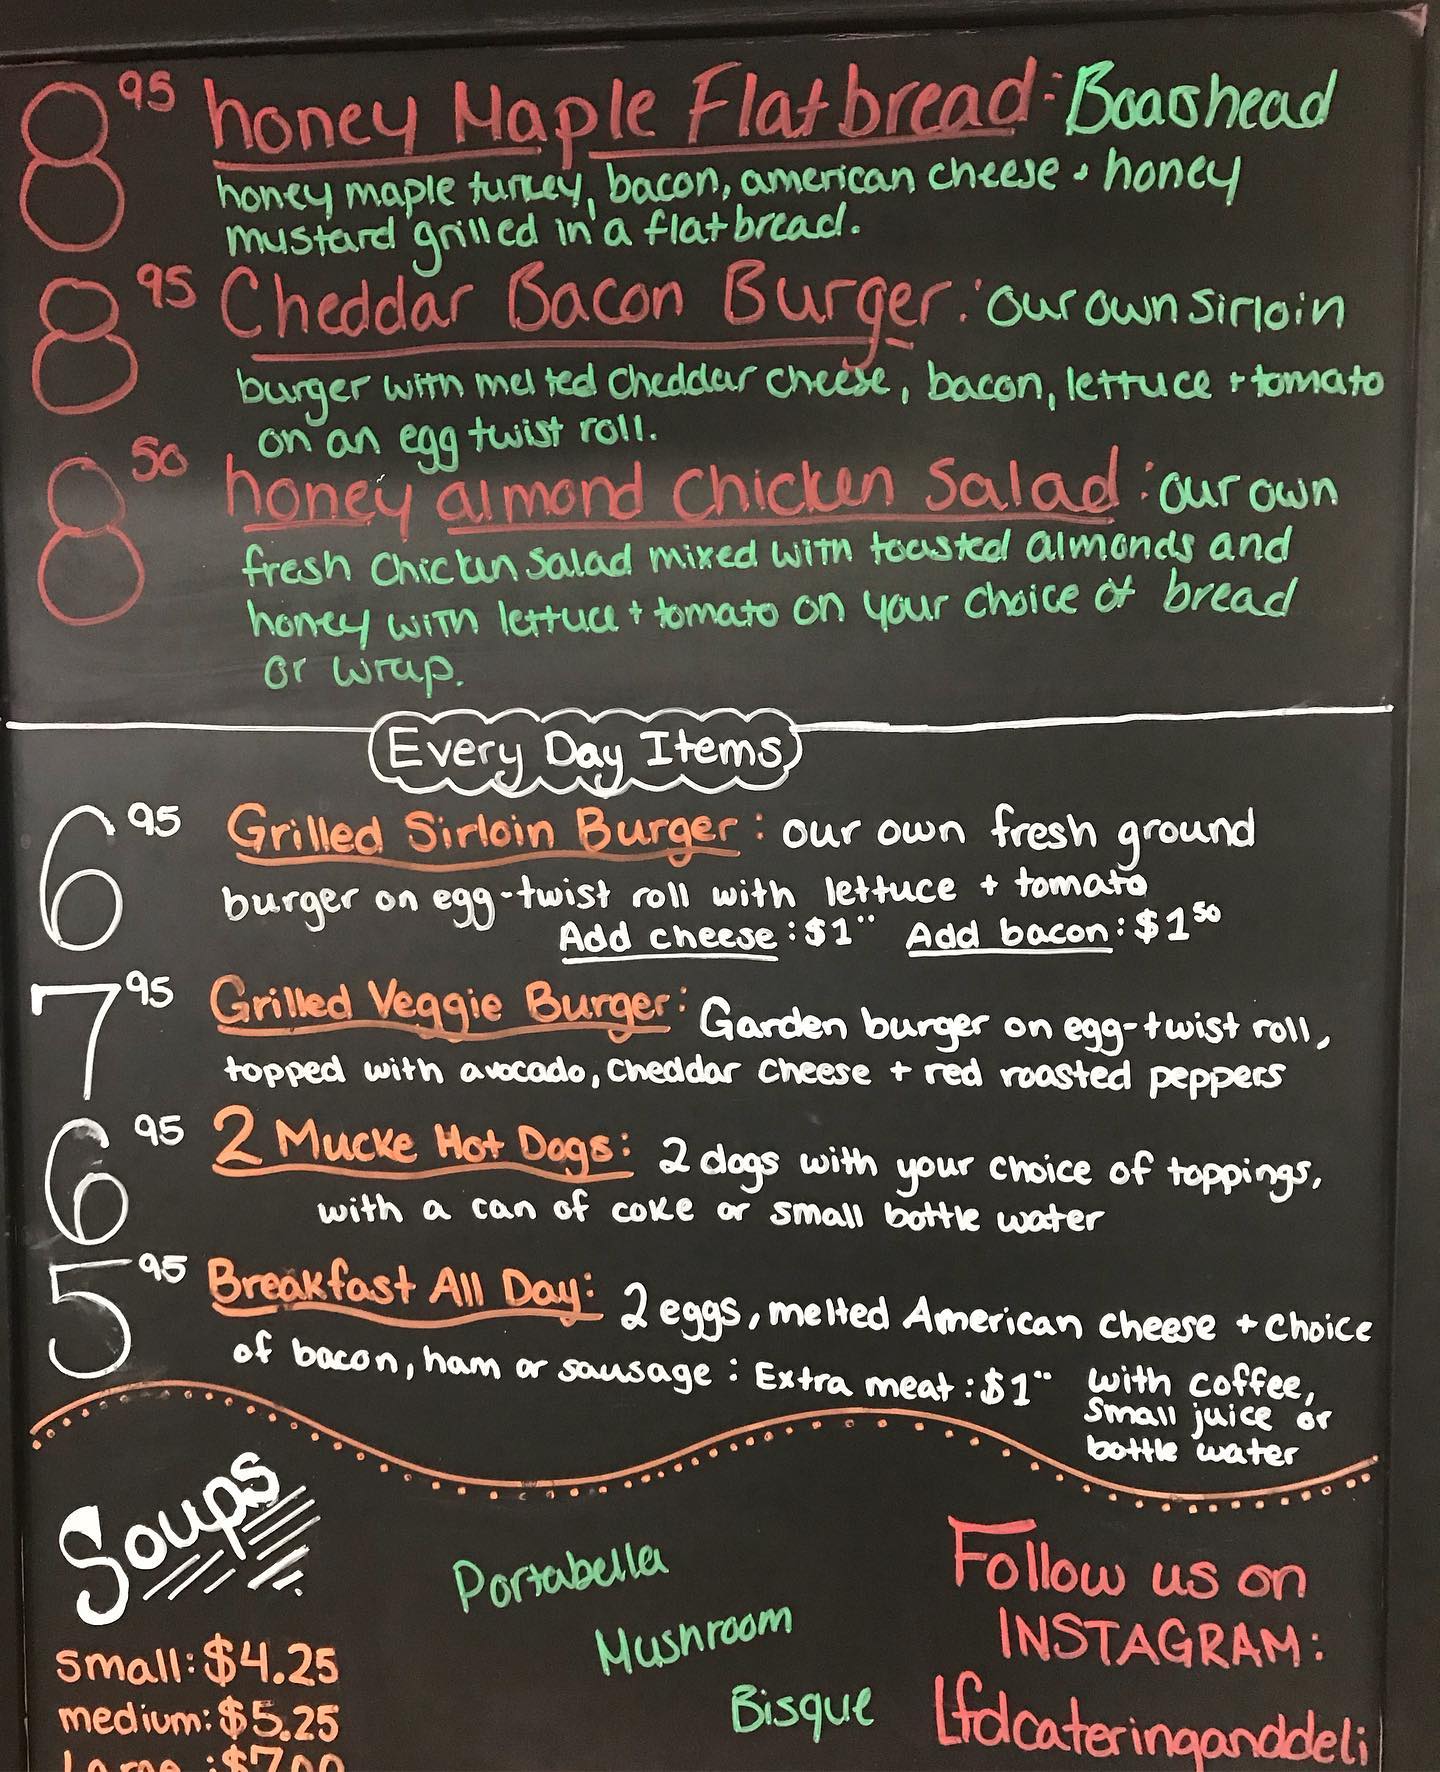 8 95 honey Maple Flatbread: Boarshead
honey maple turkey, bacon, american cheese + honey
mustard grilled in a flatbread.
8 95 Cheddar Bacon Burger: our own sirloin
burger with melted cheddar cheese, bacon, lettuce + tomato
on an egg twist roll.
8 50 honey almond chicken Salad: our own
fresh chicken salad mixed with toasted almonds and
honey with lettuce + tomato on your choice of bread
or wrap.
Every Day Items
6 95 Grilled Sirloin Burger: our own fresh ground
burger on egg-twist roll with lettuce + tomato
Add cheese: $1 00 Add bacon: $1 50
7 95 Grilled Veggie Burger: Garden burger on egg-twist roll,
topped with avocado, cheddar cheese + red roasted peppers
6 95 2 Mucke Hot Dogs: 2 dogs with your choice of toppings,
with a can of coke or small bottle water
5 95 Breakfast All Day: 2 eggs, melted American cheese + choice
of bacon, ham or sausage: Extra meat: $1 00 with coffee,
small juice or
bottle water
Soups
small: $4.25
medium: $5.25
Large: $7.00
Portabella
Mushroom
Bisque
Follow us on
INSTAGRAM:
Lfdcateringanddeli